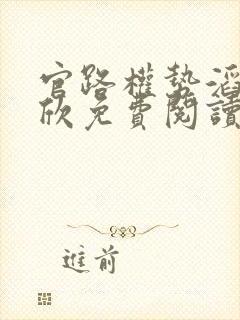 官路權勢滔
欣免費閱讀
進前